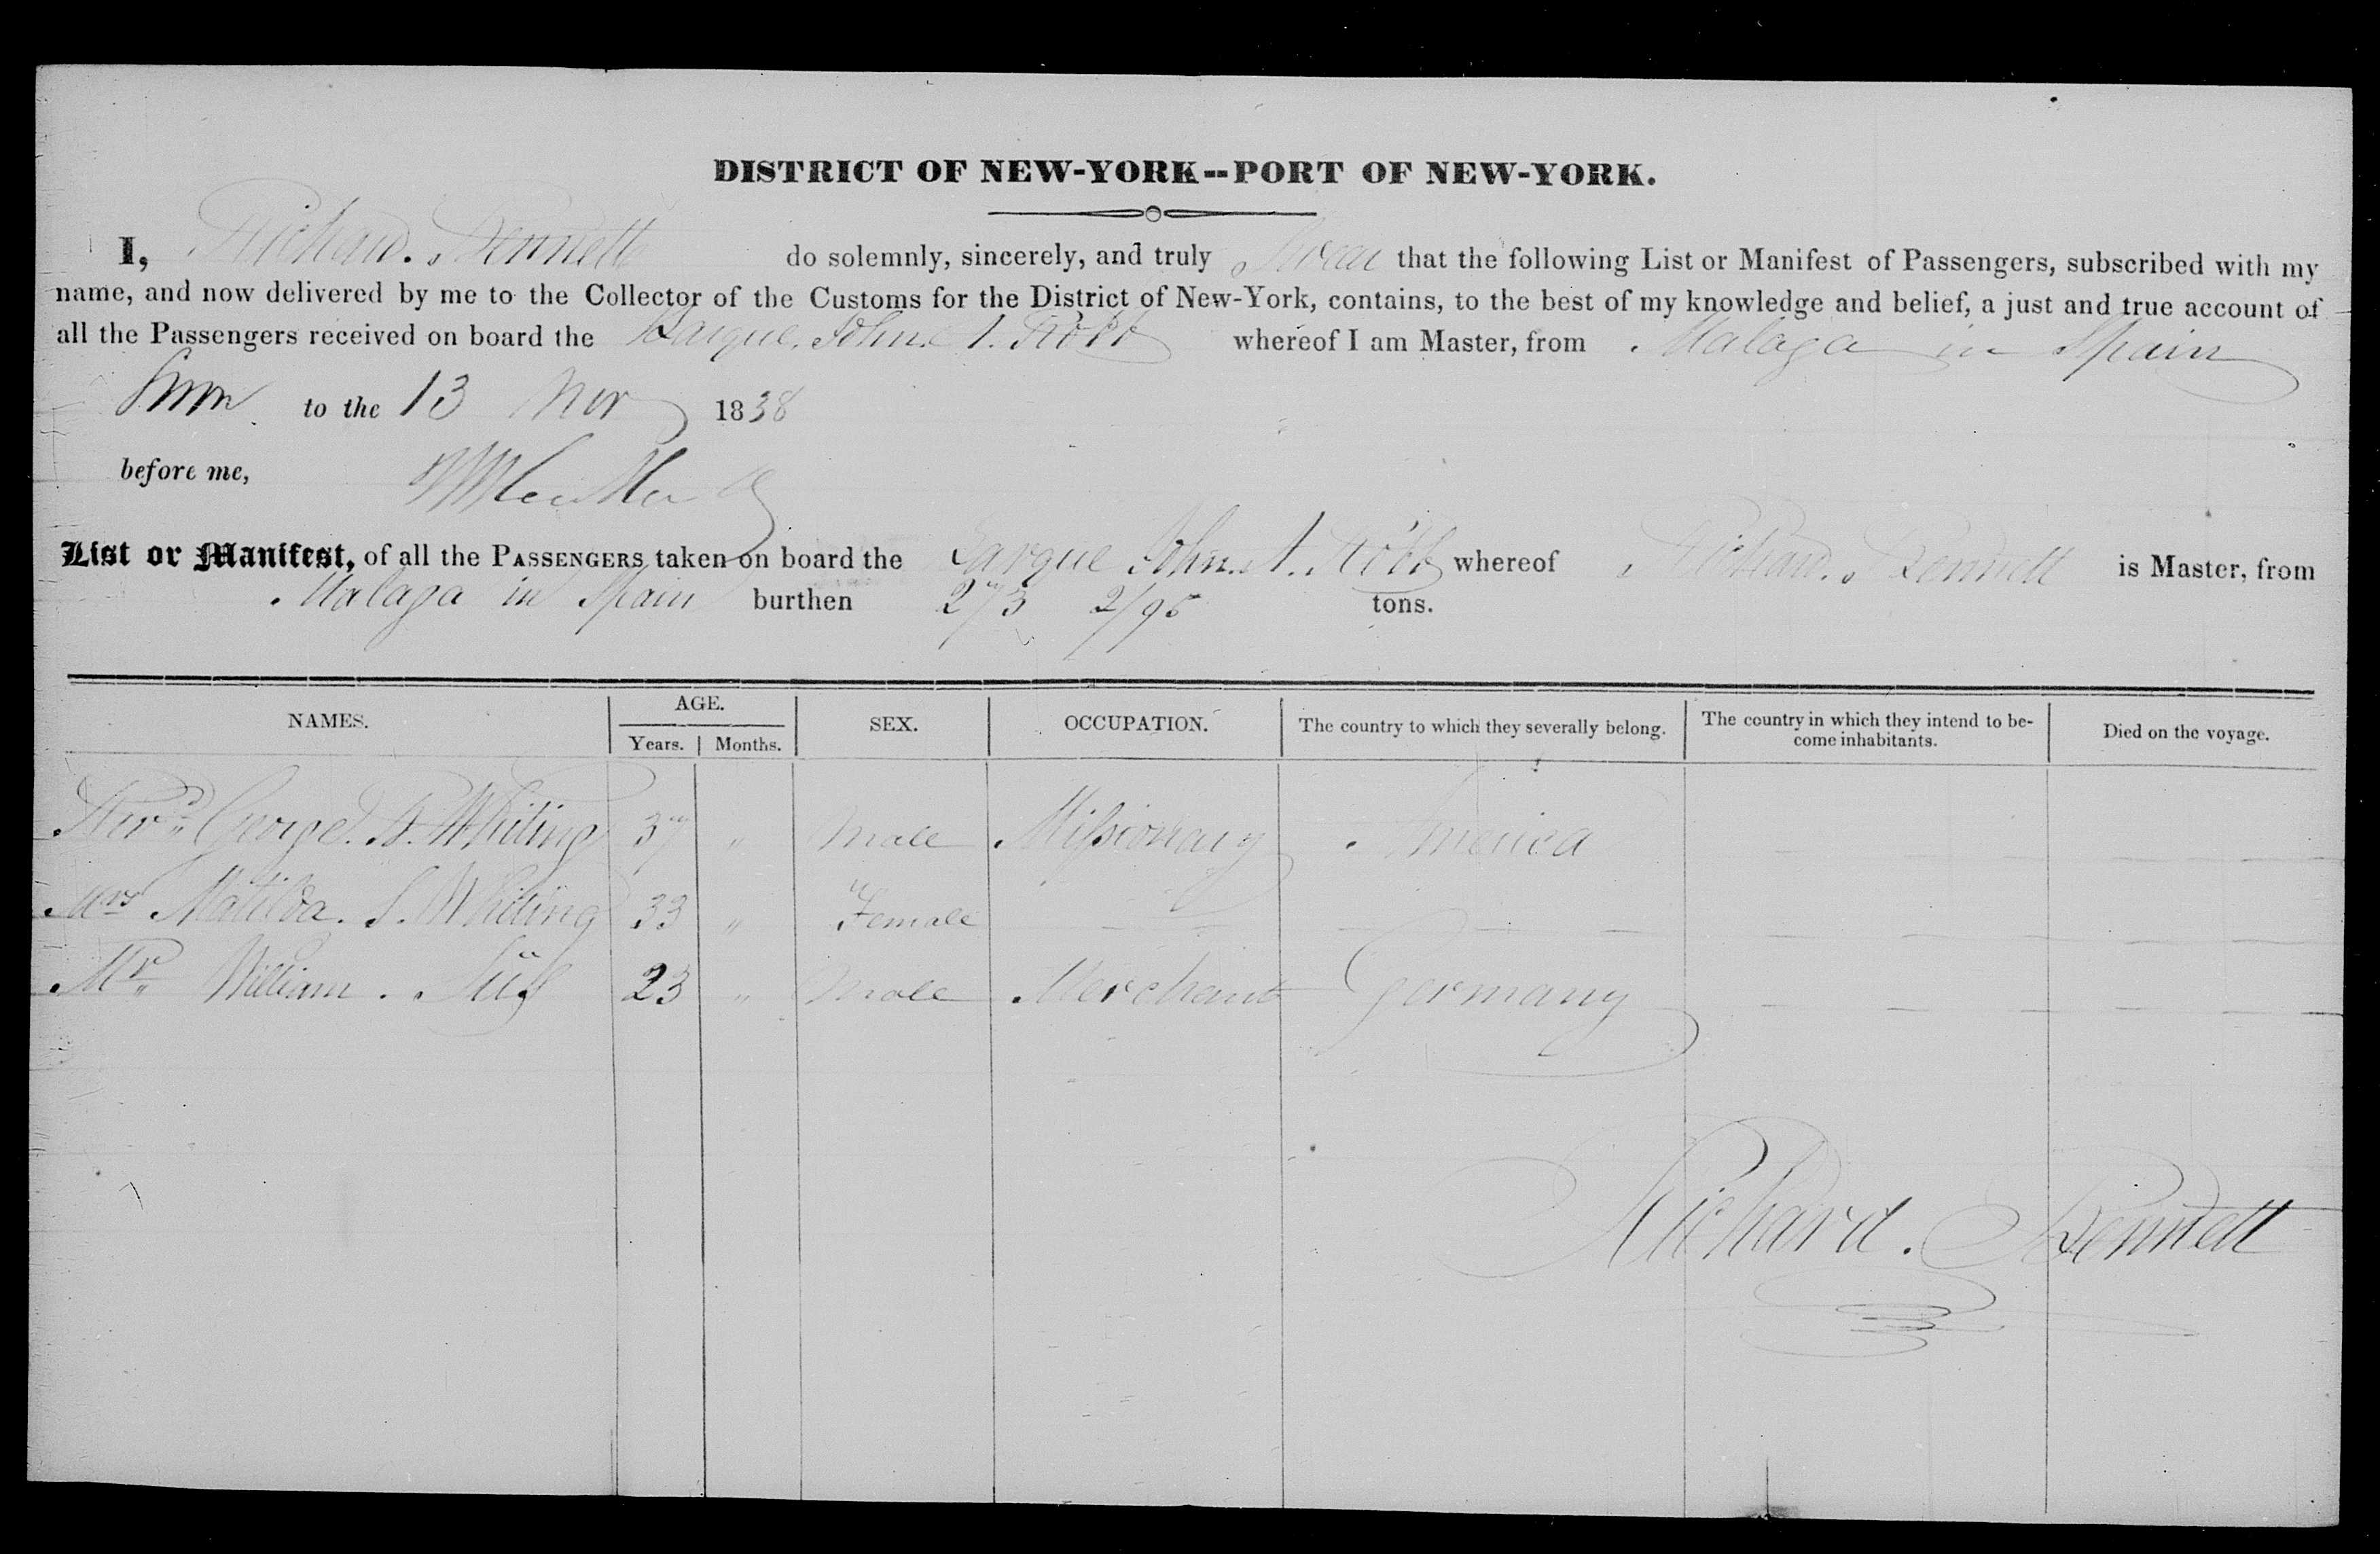 DISTRICT OF NEW-YORK--PORT OF NEW-YORK.
I, Richard. Bennett do solemnly, sincerely, and truly Swear that the following List or Manifest of Passengers, subscribed with my
name, and now delivered by me to the Collector of the Customs for the District of New-York, contains, to the best of my knowledge and belief, a just and true account of
all the Passengers received on board the Barque. John. A. Robb whereof I am Master, from Malaga in Spain
Sworn to the 13 Nov 1838
before me,
List or Manifest, of all the PASSENGERS taken on board the Barque John. A. Robb whereof Richard. Bennett is Master, from
Malaga in Spain burthen 273 2/95 tons.
NAMES. AGE. SEX. OCCUPATION. The country to which they severally belong. The country in which they intend to be-
come inhabitants. Died on the voyage.
Years. Months.
Revd. George. B. Whiting 37 " Male Missionary America
Mrs Matilda. S. Whiting 33 " Female
Mr. William. 23 " Male Merchant Germany
Richard. Bennett